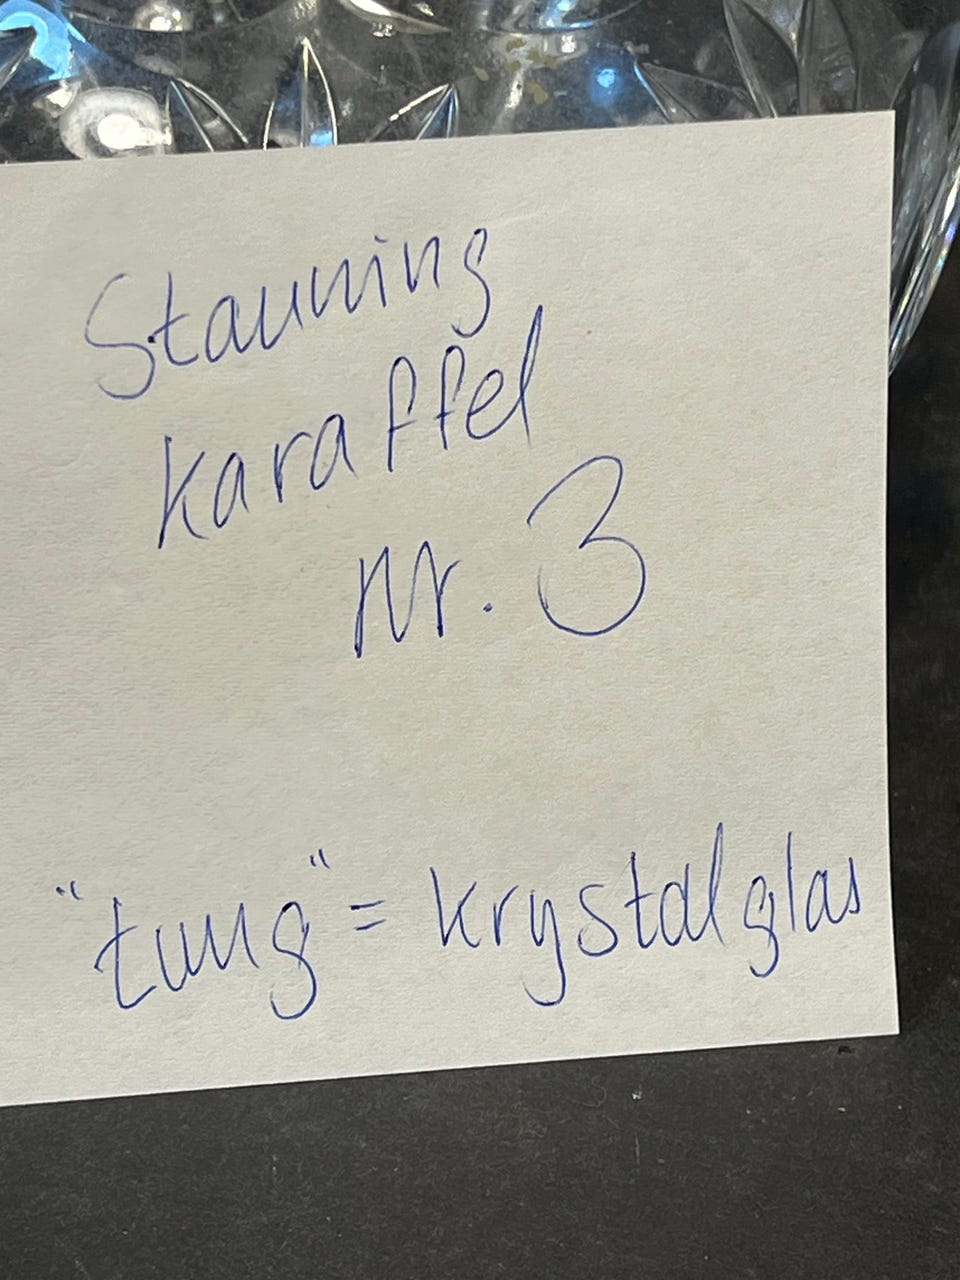 Stauning
karaffel
Nr. 3
"tung" = krystalglas